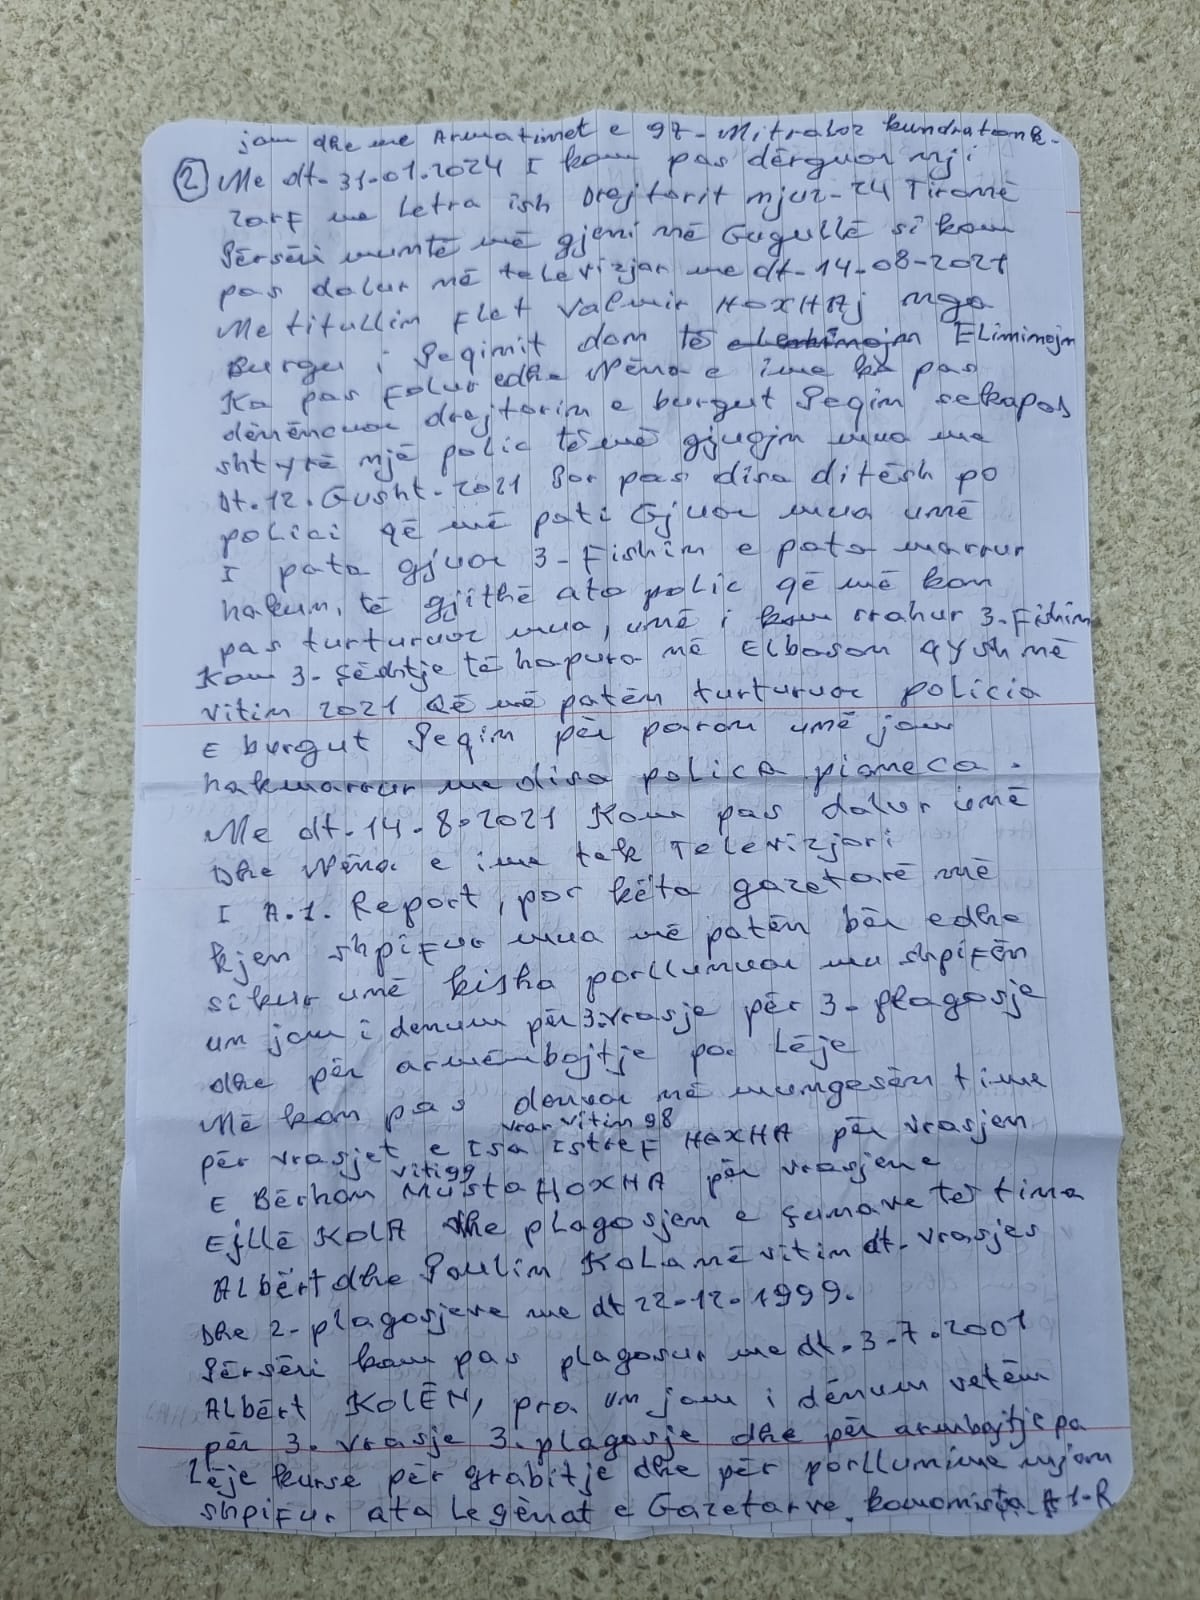 jam dhe me Armatimet e 97- Mitraloz kundratank-
② Me dt-31-01-2024 I kam pas dërguar nji
zarf me Letra ish Drejtorit mjuz-24 Tiranë
Përsëri muntë më gjeni në Gugullë si kam
pas dalur në televizjon me dt-14-08-2021
Me titullim Flet Valmir HOXHAj nga
Burgu i Peqimit dom të Elimimojn
Ka pas Folur edhe Nëna e ime ka pas
dënëncuar drejtorin e burgut Peqin se ka pas
shtytë një polic të më gjuajn mua me
Dt.12. Gusht-2021 Por pas disa ditësh po
polici që më pati Gjuar mua umë
I pata gjuar 3-Fishim e pata marrur
hakun, të gjithë ato polic që më kan
pas turturuar mua, umë i kam rrahur 3-Fishim
Kam 3- çështje të hapura në Elbasan qysh në
vitin 2021 Që më patën turturuar policia
E burgut Peqin për paran umë jam
hakmarrur me disa polica pianeca.
Me dt-14-8-2021 Kam pas dalur umë
Dhe Nëna e ime tek Televizjori
I A.1. Report, por këta gazetarë më
kjen shpifur mua më patën bër edhe
sikur umë kisha porllumuar ma shpifën
un jam i denum për 3.vrasje për 3- plagosje
dhe për armëmbajtje pa Lëje
Më kan pas denuar në mungesën time
vrar vitim 98
për vrasjet e Isa Istref HOXHA për vrasjen
viti 99
E Bërhan Musta HOXHA për vrasjene
Ejllë KOLA dhe plagosjen e çunave tët tima
Albërt dhe Paulin Kola në vitin dt- vrasjes
Dhe 2-plagosjeve me dt 22-12-1999.
Përsëri kam pas plagosur me dt-3-7-2001
Albërt KOLËN, pra un jam i dënum vetëm
për 3. vrasje 3. plagosje dhe për armbajtje pa
Lëje kurse për grabitje dhe për porllumime mjam
shpifur ata Legënat e Gazetarve komonista A1-R